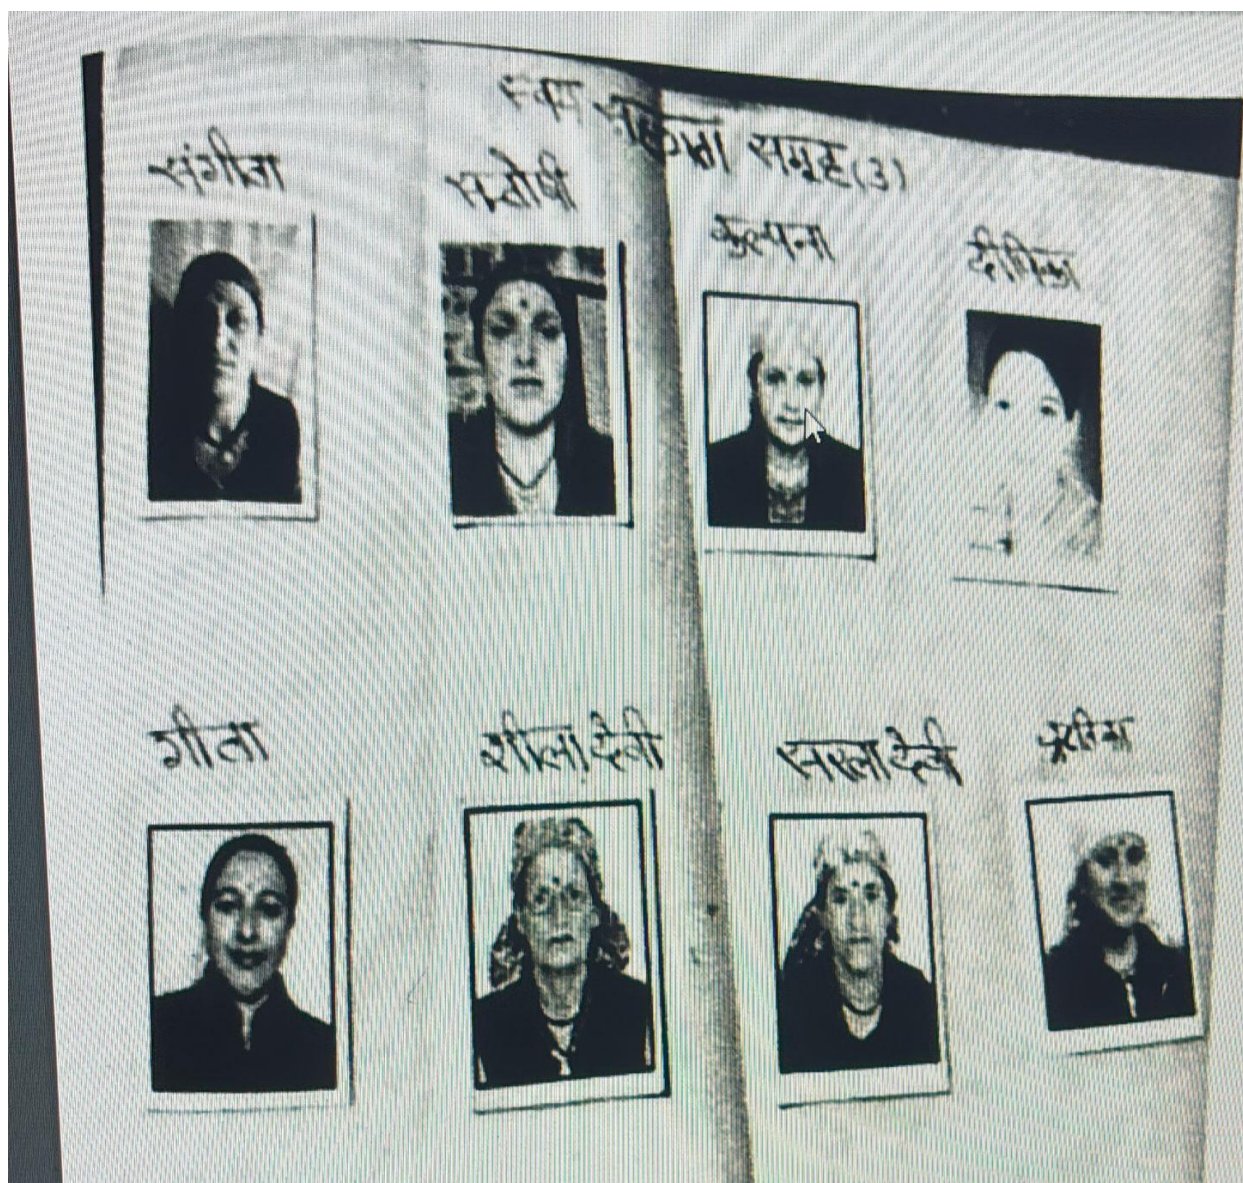 स्वयं सहायता समूह (3)
संगीता
सन्तोषी
कल्पना
दीपिका
गीता
शीला देवी
सरला देवी